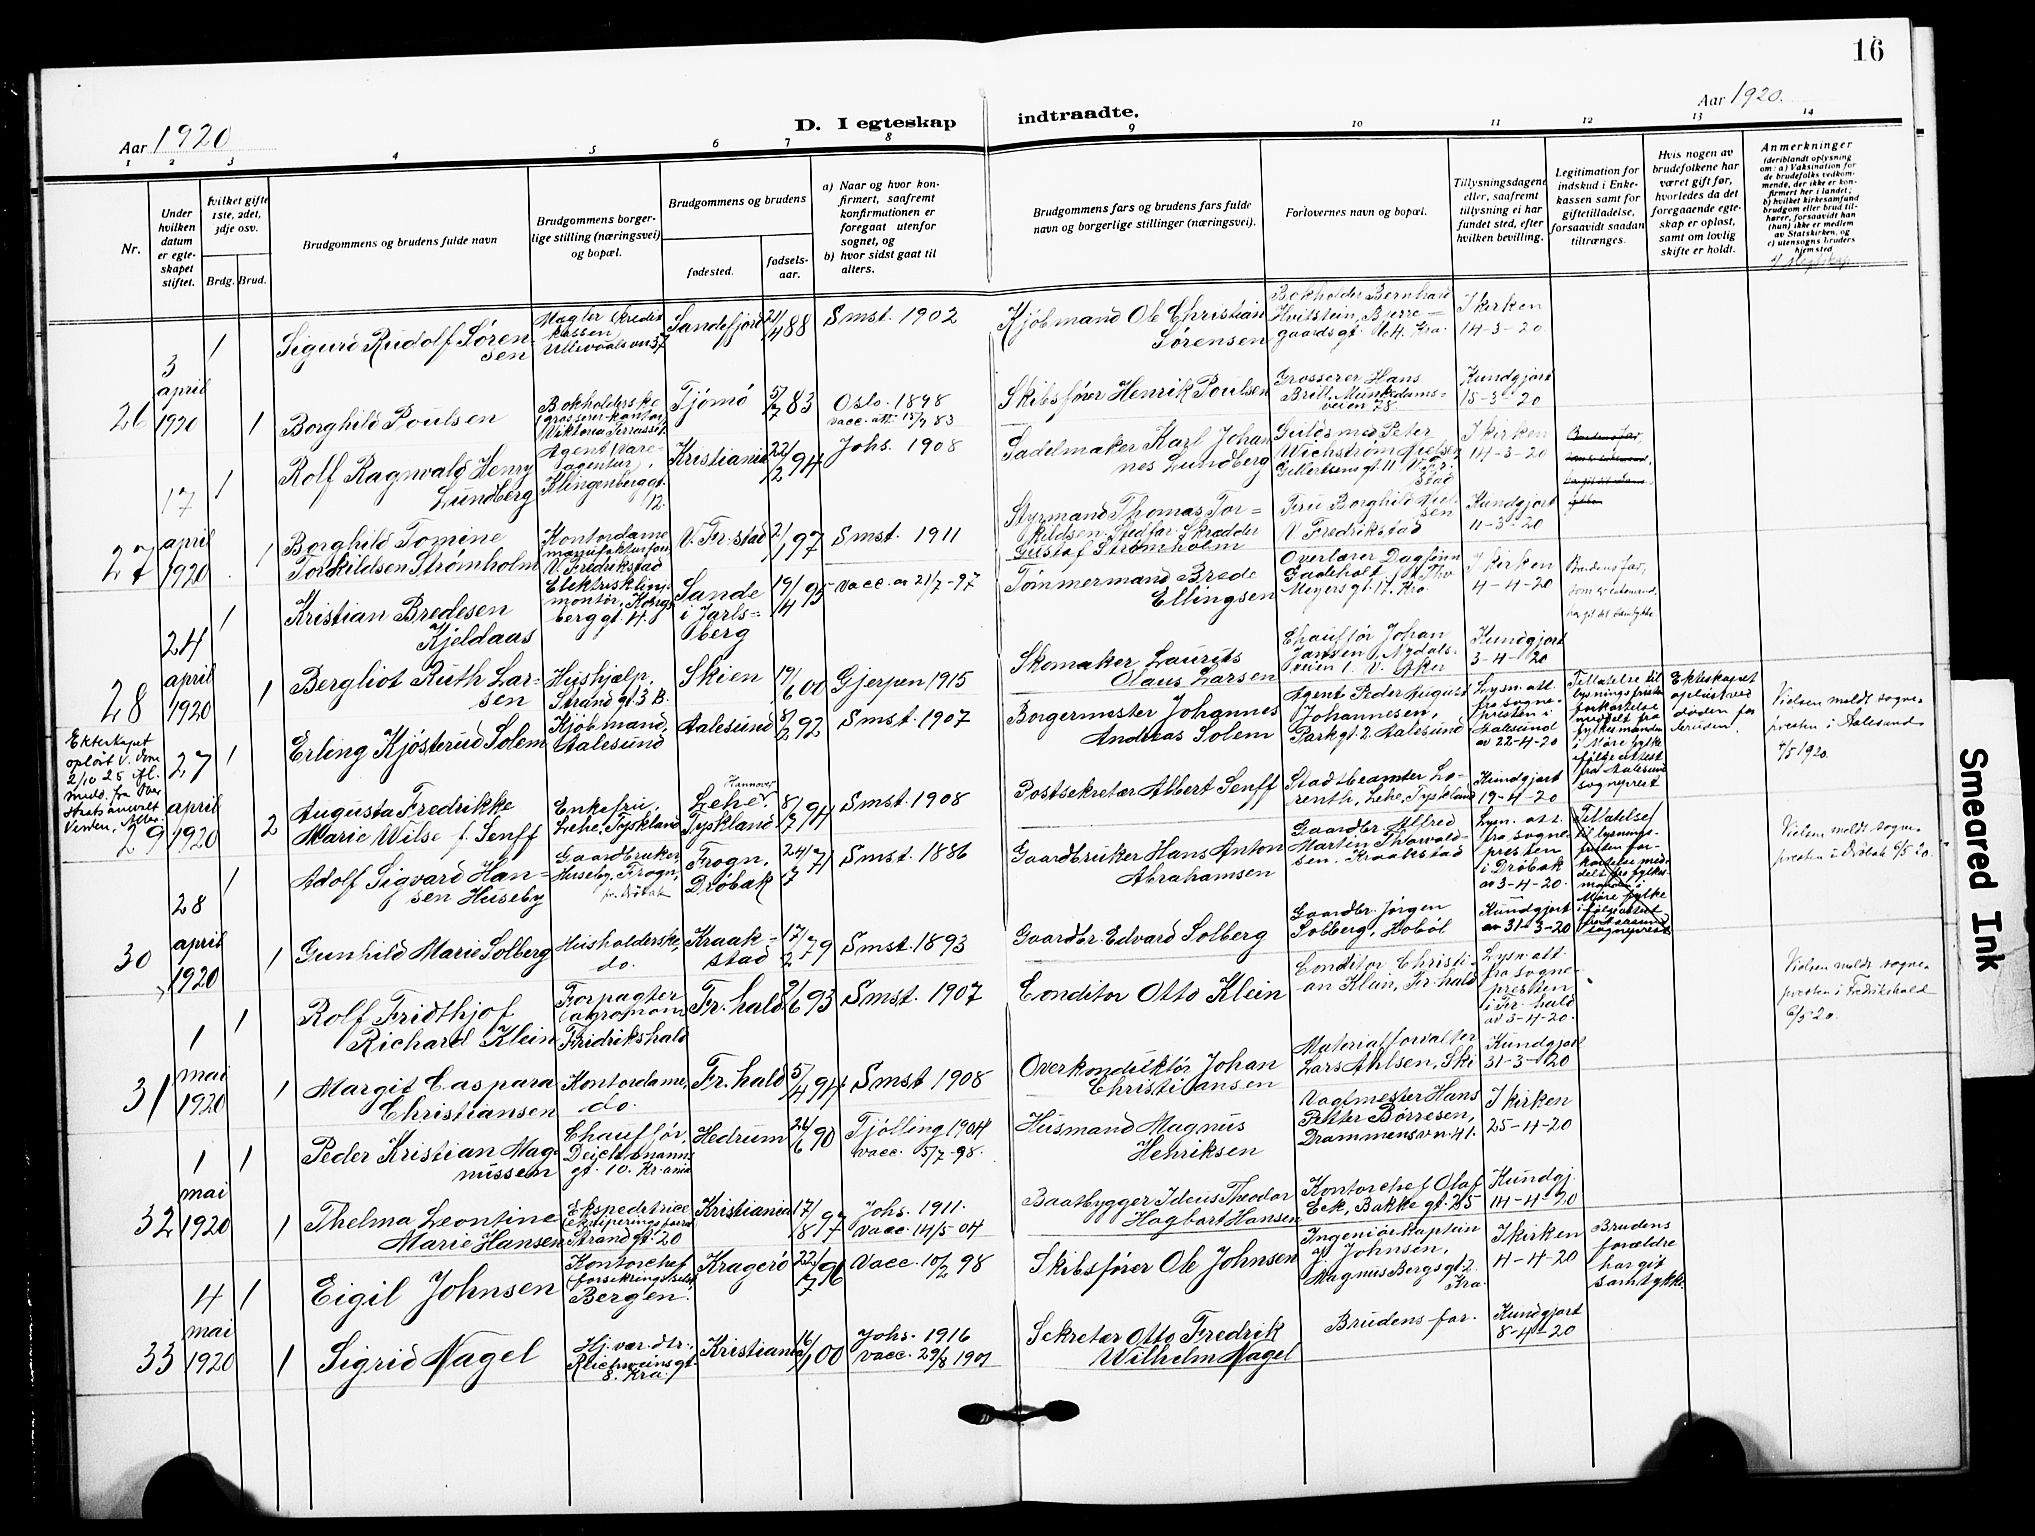 16
Aar 1920
D. I egteskap
indtraadte.
Aar 1920.
1 2 3 4 5 6 7 8 9 10 11 12 13 14
Nr.
Under hvilken datum er egteskapet stiftet.
hvilket gifte 1ste, 2det, 3dje osv.
Brdg. Brud.
Brudgommens og brudens fulde navn
Brudgommens borgerlige stilling (næringsvei) og bopæl.
Brudgommens og brudens
fødested.
fødselsaar.
a) Naar og hvor konfirmert, saafremt konfirmationen er foregaat utenfor sognet, og
b) hvor sidst gaat til alters.
Brudgommens fars og brudens fars fulde navn og borgerlige stillinger (næringsvei).
Forlovernes navn og bopæl.
Tillysningsdagene eller, saafremt tillysning ei har fundet sted, efter hvilken bevilling.
Legitimation for indskud i Enkekassen samt for giftetilladelse, forsaavidt saadan tiltrænges.
Hvis nogen av brudefolkene har været gift før, hvorledes da det foregaaende egteskap er opløst, samt om lovlig skifte er holdt.
Anmerkninger
(deriblandt oplysning om: a) Vaksination for de brudefolks vedkommende, der ikke er konfirmert her i landet;
b) hvilket kirkesamfund brudgom eller brud tilhører, forsaavidt han (hun) ikke er medlem av Statskirken, og
c) utensogns bruders hjemsted
26
3 april 1920
1
Sigurd Rudolf Sørensen
Mægler Kreditkassen,
Sandefjord
21/4 88
Smst. 1902
Kjøbmand Ole Christian Sørensen
Bokholder Bernhard Hvitstein, Bjerregaardsgt.
I kirken 14-3-20
1
Borghild Poulsen
Bokholderske
Tjømø
5/7 83
Oslo. 1898
vacc. att. 15/9 83
Skibsfører Henrik Poulsen
Grosserer Hans Brill, Munkedamsveien 75.
Kundgjort 15-3-20
27
17 april 1920
1
Rolf Ragnvald Henry Lundberg
Agent (Vareagentur), Klingenberggt. 12.
Kristiania
22/2 94
Johs. 1908
Sadelmaker Karl Johannes Lundberg
Guldsmed Peter Wichstrøm Nielsen
I kirken 14-3-20
1
Borghild Tomine Torkildsen Strømholm
Kontordame
V. Fredrikstad
V. Fr.stad
2/1 97
Smst. 1911
Styrmand Thomas Torkildsen. Stedfar: Skrædder Gustaf Strømholm
Fru Borghild Nielsen V. Fredrikstad
Kundgjort 11-3-20
28
24 april 1920
1
Kristian Bredesen Kjeldaas
montør,
Sande i Jarlsberg
19/4 95
Vacc. 21/7-97
Tømmermand Brede Ellingsen
Overlærer Dagfinn Gadeholt, Th. Meyersgt. 17. Kra
I kirken 4-4-20
Brudens far,
har git det samtykke
1
Bergliot Ruth Larsen
Hushjælp, Strandgt. 3 B.
Skien
19/6 00
Gjerpen 1915
Skomaker Laurits Olaus Larsen
Chauffør Johan Jansen, Nydalsveien 1. V. Aker
Kundgjort 3-4-20
Ekteskapet opløst
29
27 april 1920
1
Erling Kjøsterud Solem
Kjøbmand, Aalesund
Aalesund
8/2 92
Smst. 1907
Borgermester Johannes Andreas Solem
Agent Peder August Johannesen, Parkgt. 2. Aalesund
Lysn. att. fra sognepresten i Aalesund av 22-4-20
Tillatelse til lysningsfristens forkortelse meddelt fra fylkesmanden i Møre fylke ifølge attest fra Aalesund sogneprest
Ekteskapet opløst ved døden før bruden.
Vielsen meldt sognepresten i Aalesund 4/5 1920.
2
Augusta Fredrikke Marie Wilse f. Senff
Enkefru, Lehe, Tyskland
Hannover
Lehe, Tyskland
8/7 94
Smst. 1908
Postsekretær Albert Senff
Stadtbeamter Lorenth, Lehe, Tyskland
Kundgjort 19-4-20
30
28 april 1920
1
Adolf Sigvard Hansen Huseby
Gaardbruker, Huseby, Frogn, pr. Drøbak
Frogn, Drøbak
24/7 71
Smst. 1886
Gaardbruker Hans Anton Abrahamsen
Gaardbr. Alfred Martin Thorvaldsen. Kraakstad
Lysn. att. fra sognepresten i Drøbak av 3-4-20.
Vielsen meldt sognepresten i Drøbak 6/5 20.
1
Gunhild Marie Solberg
Husholderske, do.
Kraakstad
17/2 79
Smst. 1893
Gaardbr. Edvard Solberg
Gaardbr. Jørgen Solberg, Hobøl
Kundgjort av 31-3-20
31
1 mai 1920
1
Rolf Fridthjof Richard Klein
Forpagter (agronom) Fridrikshald
Fr. hald
2/6 93
Smst. 1907
Conditor Otto Klein
Conditor Christian Klein, Fr. hald
Lysn. att. fra sognepresten i Fr. hald av 3-4-20.
Vielsen meldt sognepresten i Fredrikshald 6/5 20.
1
Margit Caspara Christiansen
Kontordame, do.
Fr. hald
5/4 94
Smst 1908
Overkonduktør Johan Christiansen
Materialforvalter Lars Ahlsen, Ski
Kundgjort 31-3-20
32
1 mai 1920
1
Peder Kristian Magnussen
Chauffør Deichmannsgt. 10. Kr.ania
Hedrum
26/6 90
Tjølling 1904
vacc. 5/7-98.
Husmand Magnus Henriksen
Vagtmester Hans Petter Børresen, Drammensvn. 41.
I kirken 25-4-20
1
Thelma Leontine Marie Hansen
Ekspeditrice (ekviperingsforr.) Strandgt. 20
Kristiania
17/8 97
Johs. 1911.
Vacc. 14/5 04
Baatbygger Ideus Theodor Hagbart Hansen
Kontorchef Olaf Eek, Bakkegt. 25
Kundgj. 14-4-20
33
4 mai 1920
1
Eigil Johnsen
Kontorchef (forsikringsselsk.) Bergen.
Kragerø
22/7 96
Vacc. 10/2 98
Skibsfører Ole Johnsen
Ingeniørkaptein J. Johnsen, Magnus Bergsgt. 2. Kra.
I kirken 11-4-20
Brudens forældre har git samtykke.
1
Sigrid Nagel
Hj. vær. dtr. Reichweinsgt. 8. Kra.
Kristiania
16/1 00
Johs. 1916
Vacc. 29/8 1901
Sekretær Otto Fredrik Wilhelm Nagel
Brudens far.
Kundgjort 8-4-20
Smeared Ink